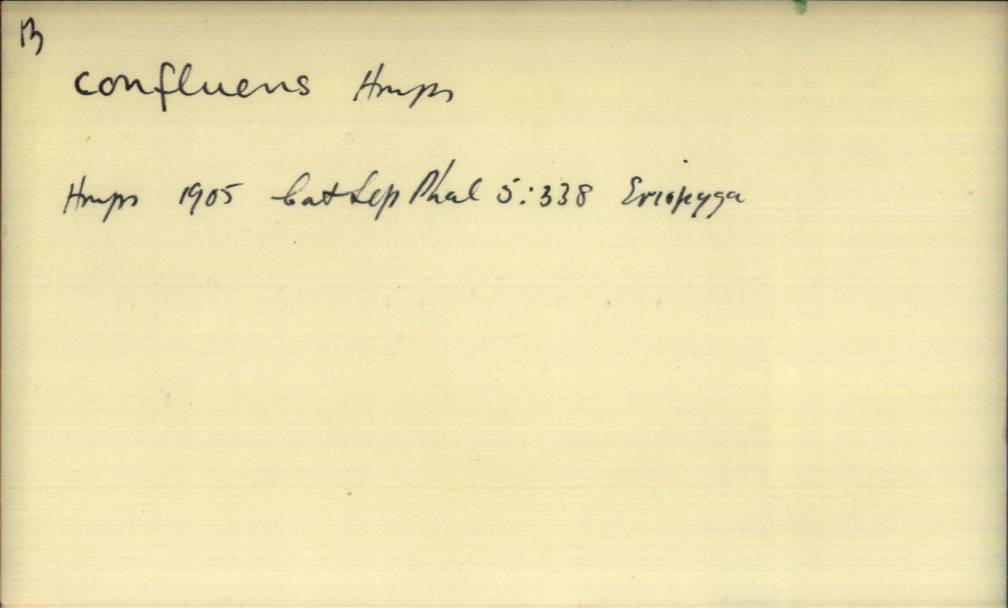 B
confluens Hmps
Hmps 1905 Cat Lep Phal 5:338 Eriopyga